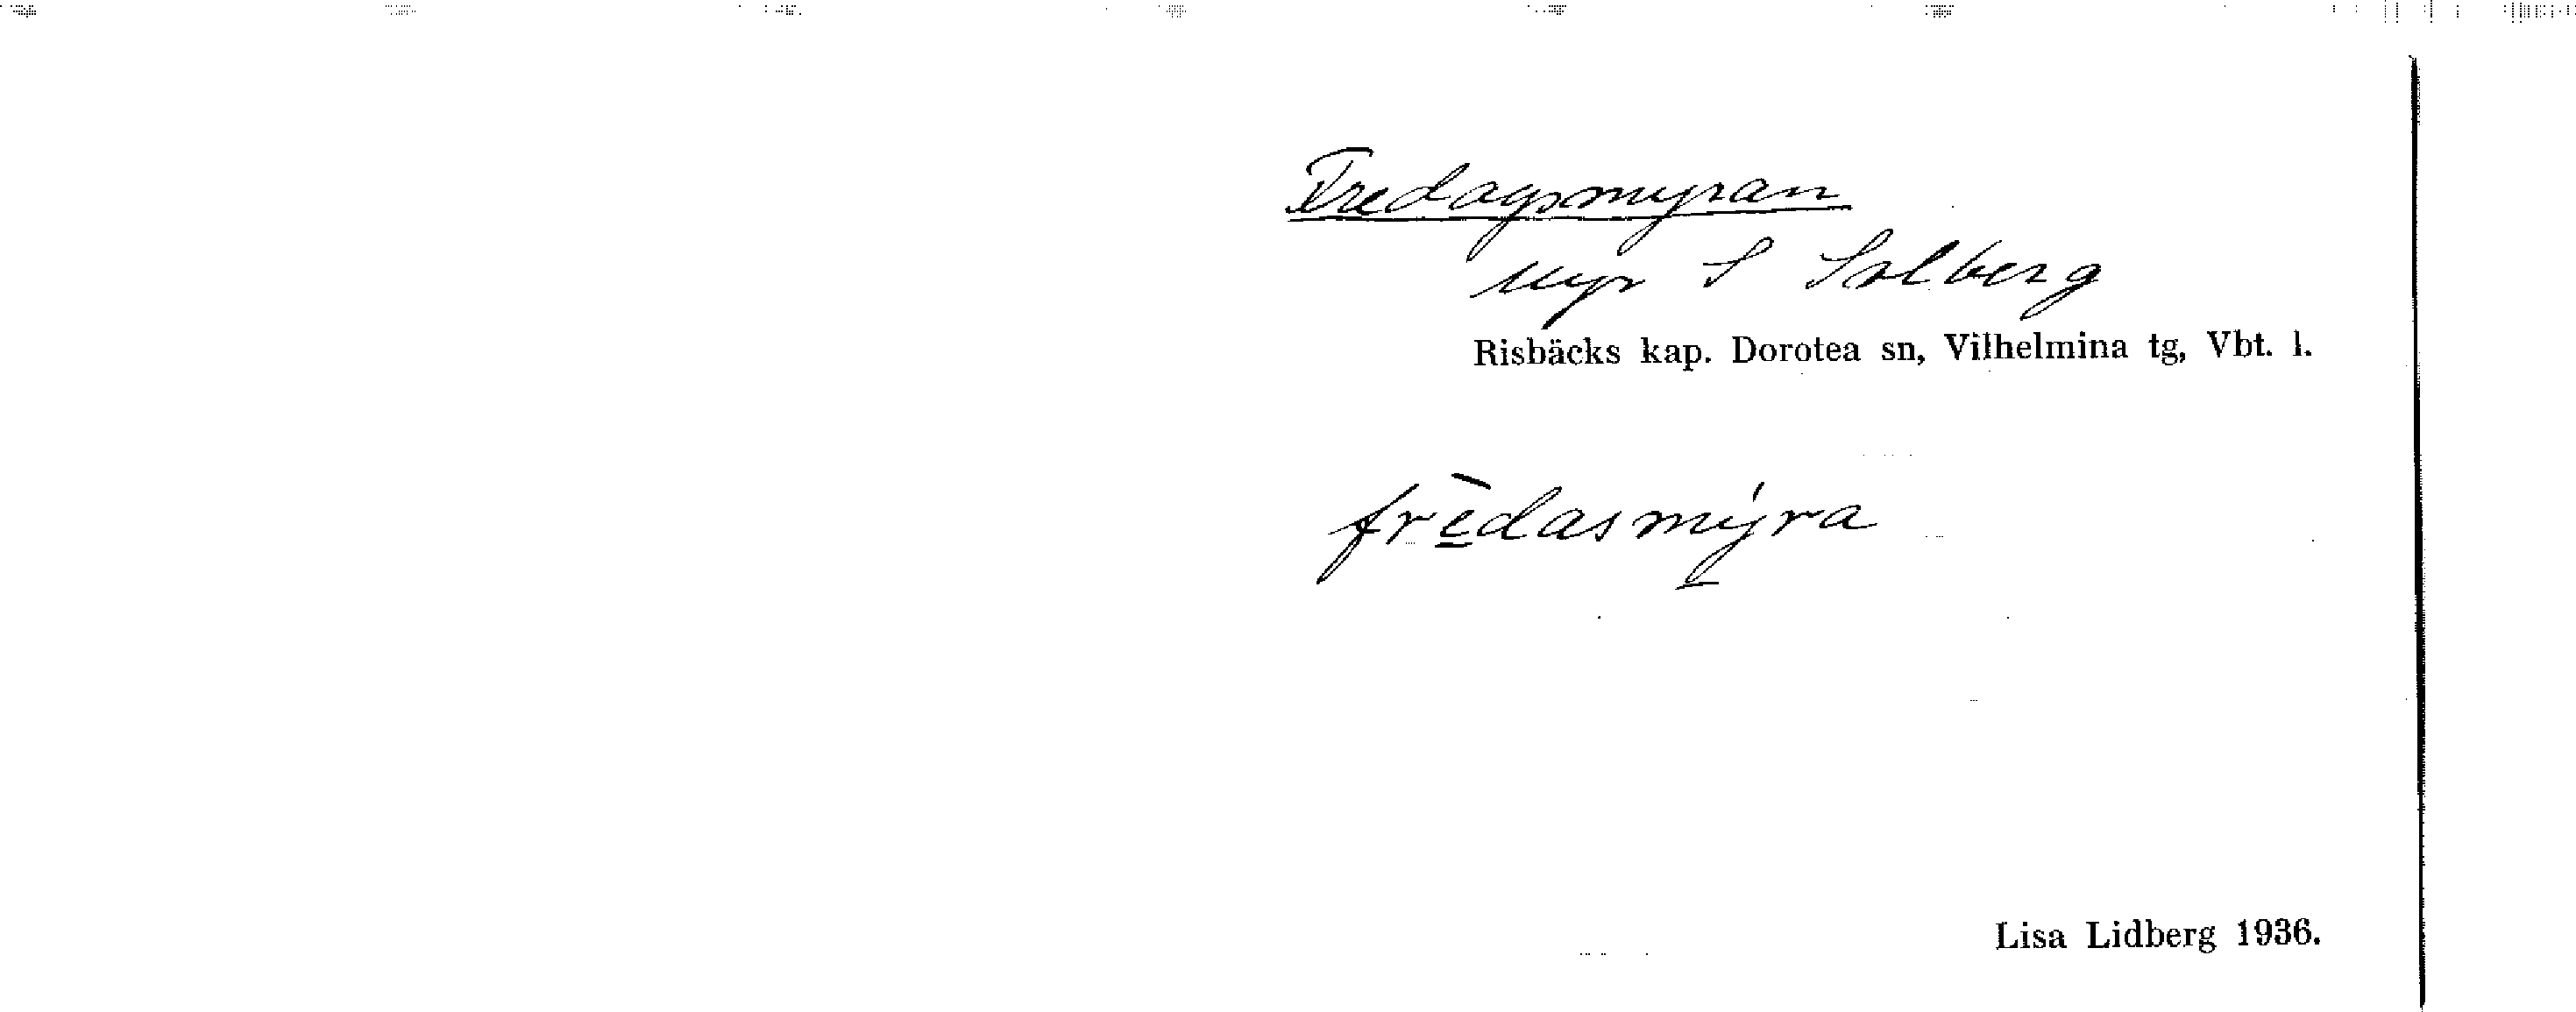 Fredagsmyran
myr S Solberg
Risbäcks kap. Dorotea sn, Vilhelmina tg, Vbt. l.
frè̱dasmý̱ra
Lisa Lidberg 1936.